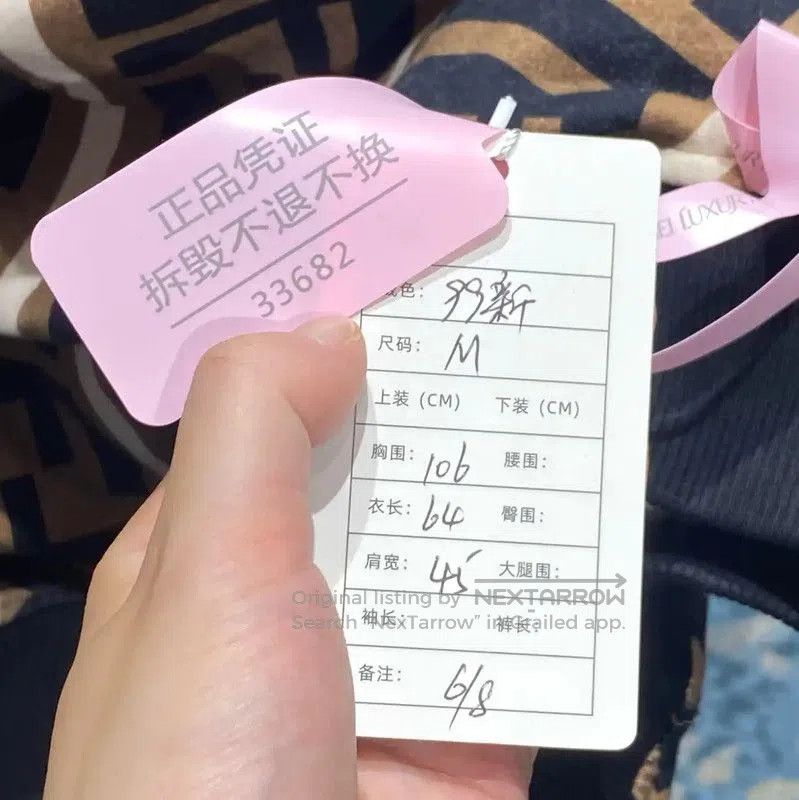 正品凭证
拆毁不退不换
33682
成色：99新
尺码：M
上装（CM） 下装（CM）
胸围：106 腰围：
衣长：64 臀围：
肩宽：45 大腿围：
袖长： 裤长：
备注：6/8
LUXUR
Original listing by NEXTARROW
Search "NexTarrow" in Carousell app.